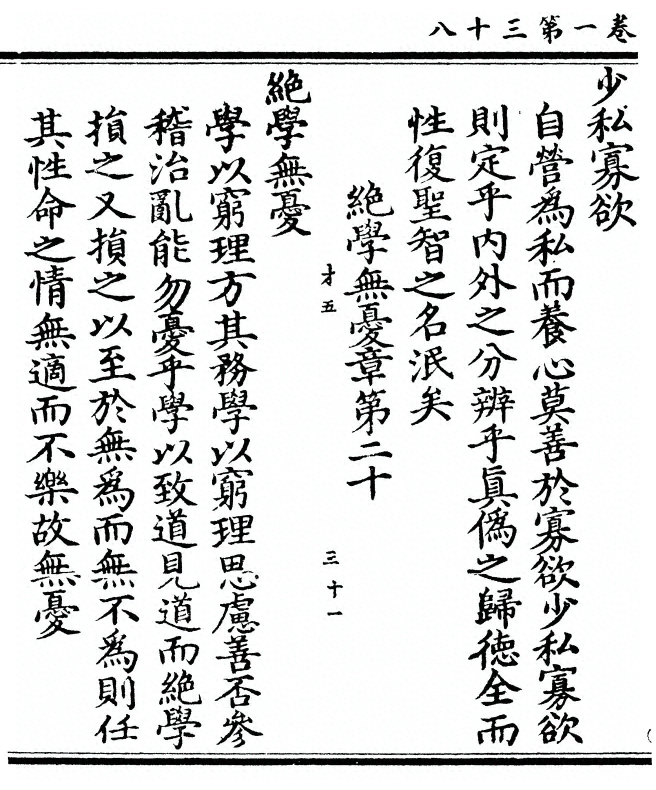 卷一第三十八
少私寡欲
自營爲私而養心莫善於寡欲少私寡欲
則定乎内外之分辨乎真僞之歸德全而
性復聖智之名泯矣
絶學無憂章第二十
才五
三十一
絶學無憂
學以窮理方其務學以窮理思慮善否參
稽治亂能勿憂乎學以致道見道而絶學
損之又損之以至於無爲而無不爲則任
其性命之情無適而不樂故無憂